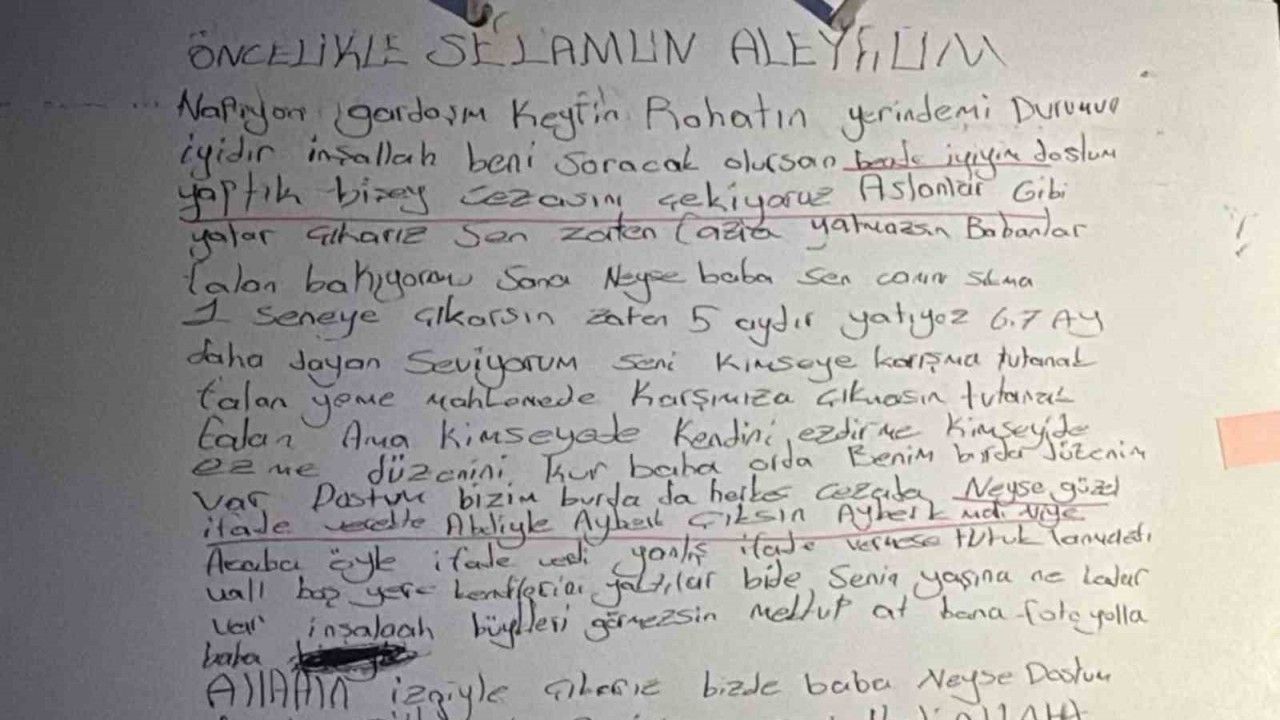 ÖNCELİKLE SELAMUN ALEYKUM
Napıyon gardaşım Keyfin Rahatın yerindemi Durumun
iyidir inşallah beni soracak olursan bende iyiyim dostum
yaptık bizey cezasını çekiyoruz Aslanlar Gibi
yatar çıkarız Sen zaten fazla yatmazsın Babanlar
falan bakıyorum Sana Neyse baba Sen canın sıkma
1 Seneye çıkarsın zaten 5 aydır yatıyoz 6.7 Ay
daha dayan Seviyorum seni Kimseye karışma tutanak
falan yeme mahkemede Karşımıza çıkmasın tutanak
falan Ama Kimseyede Kendini ezdirme Kimseyide
ezme düzenini Kur baba orda Benim burda düzenim
var Dostum bizim burda da herkes cezada Neyse güzel
ifade verekte Abiliyle Ayberk Çıksın Ayberk niye
Acaba öyle ifade verdi yanlış ifade vermese tutuklanmadı
vall boş yere kendilerini yaktılar bide Senin yaşına ne kadar
var inşalaah büyükleri görmezsin mektup at bana foto yolla
baba
Allahın izniyle çıkarız bizde baba Neyse Dostum